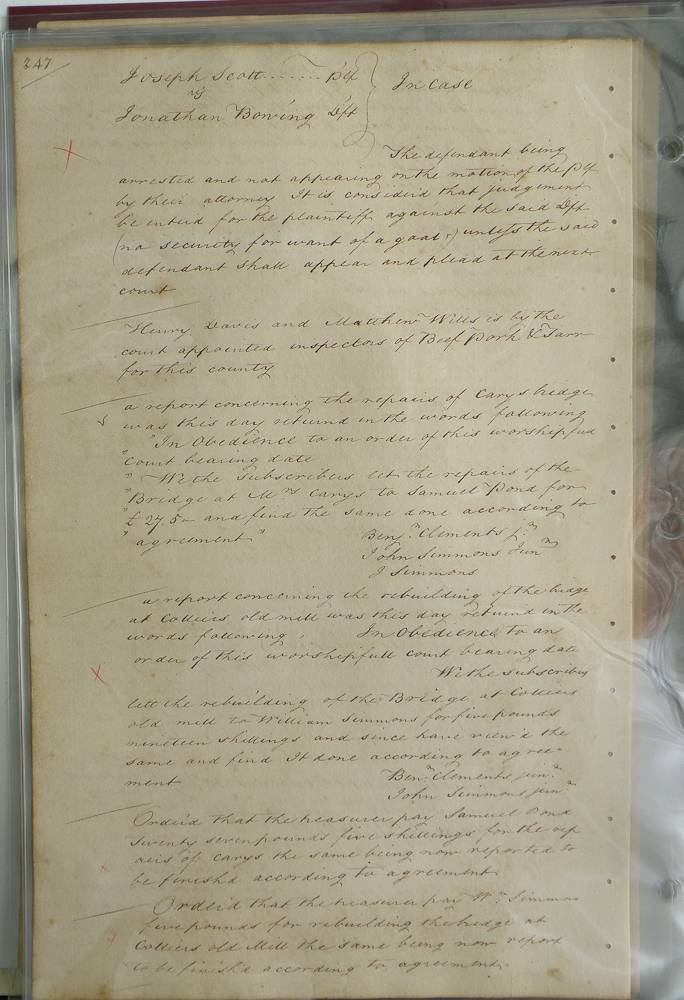 247
Joseph Scott ....... Plt
vs
Jonathan Bowing Dft
In case
The defendant being
arrested and not appearing on the motion of the Plt
by their attorney It is consider'd that judgement
be enterd for the plaintiff against the said Dft
(no security for want of a goal) unless the said
defendant shall appear and plead at the next
court
Henry Davis and Matthew Wills is by the
court appointed inspectors of Beef Pork & Tarr
for this county
a report concerning the repairs of Carys bridge
was this day returnd in the words following
"In Obedience to an order of this worshipfull
"Court bearing date
" We the Subscribers let the repairs of the
"Bridge at Mrs Carys to Samuel Pond for
"£ 27,5 - and find the same done according to
"agreement"
Benjn Clements jr
John Simmons Junr
J Simmons
a report concerning the rebuilding of the bridge
at Colliers old mill was this day returnd in the
words following, In Obedience to an
order of this worshipfull court bearing date
We the subscribers
lett the rebuilding of the Bridge at Colliers
old mill to William Simmons for five pounds
nineteen shillings and since have view'd the
same and find It done according to agree-
ment
Benn Clements junr
John Simmons junr
Orderd that the treasurer pay Samuel Pond
Twenty seven pounds five shillings for the rep
airs of Carys the same being now reported to
be finish'd according to agreement
Orderd that the treasurer pay Wm Simmons
five pounds for rebuilding the bridge at
Colliers old Mill the same being now report
to be finishd according to agreement